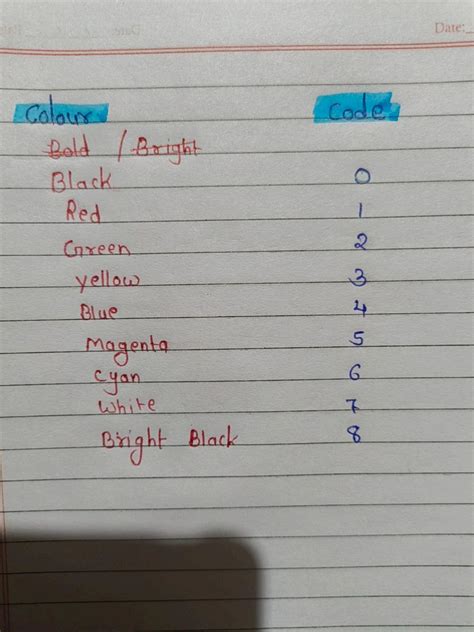 Date:
Colour Code
Bold / Bright
Black 0
Red 1
Green 2
yellow 3
Blue 4
Magenta 5
cyan 6
white 7
Bright Black 8